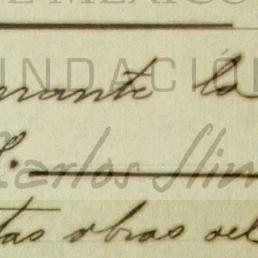 DE MÉXICO
FUNDACIÓ
rante la
Carlos Slim
tas obras del